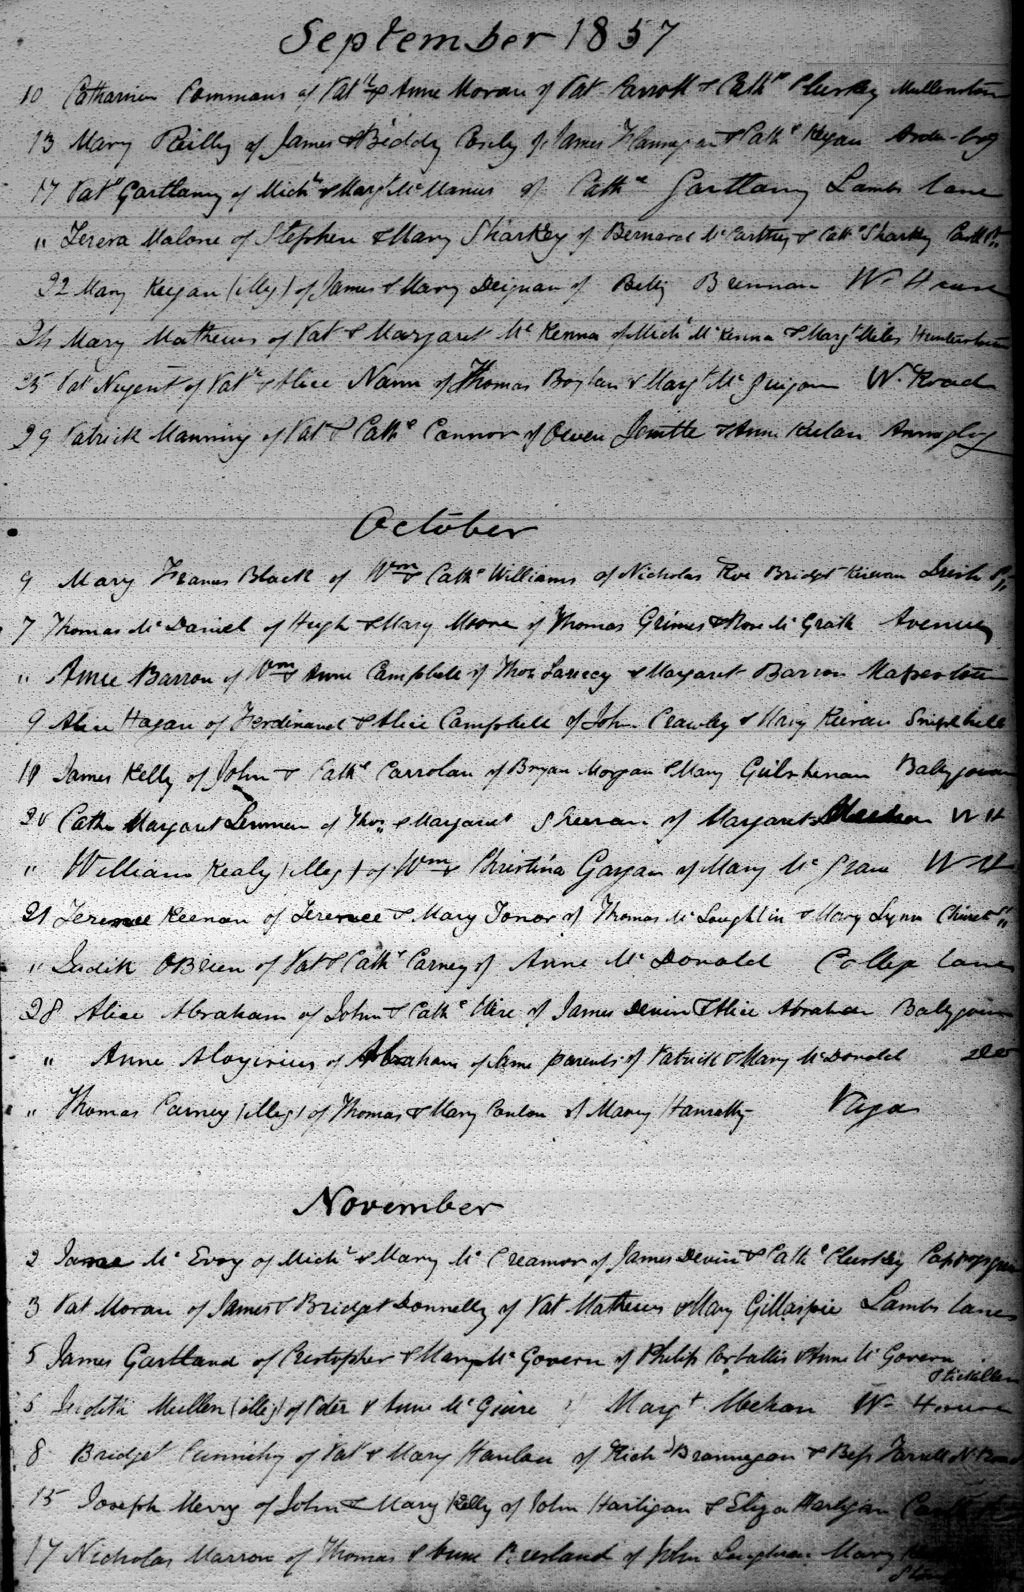 September 1857
10 Catharine Commans of Patk & Anne Moran of Pat Carroll & Cathe Clusky
13 Mary Reilly of James & Biddy Cosly of James Flannegan & Cathe Kegan Ardee-bog
17 Patk Gartlany of Michl & Margt McManus of Cathe Gartlany Lambs lane
" Teresa Malone of Stephen & Mary Sharkey of Bernard McCartney & Cathe Sharkey Castle St
22 Mary Keegan (illeg) of James & Mary Deignan of Betty Brennan W. House
24 Mary Mathews of Pat & Margaret McKenna of Michl McKenna & Margt Miles Hunterstown
25 Pat Nugent of Patk & Alice Nann of Thomas Boylan & Margt McGuigan W. Road
29 Patrick Manning of Pat & Cathe Connor of Owen & Anne Keelan
October
9 Mary Frances Black of Wm & Cathe Williams of Nicholas Roe Bridget Kieran Irish St
7 Thomas McDaniel of Hugh & Mary Moore of Thomas Grimes & Rose McGrath Avenue
" Anne Barron of Wm & Anne Campbell of Thos & Margaret Barron Mapestown
9 Alice Hagan of Ferdinand & Alice Campbell of John Crawley & Mary Kieran
18 James Kelly of John & Cathe Carrolan of Bryan Morgan & Mary Ballygowan
20 Cathe Margaret Lennen of Thos & Margaret Sheeran of Margaret W H
" William Kealy (illeg) of Wm & Christina Gargan of Mary McGrane W H
21 Terence Keenan of Terence & Mary Tonor of Thomas McLoughlin & Mary Lynn
" Judith OBrien of Pat & Cathe Carney of Anne McDonald College lane
28 Alice Abraham of John & Cathe Wire of James Devin & Alice Abraham Ballygowan
" Anne Aloysius of Abraham of same parents of Patrick & Mary McDonald do
" Thomas Carney (illeg) of Thomas & Mary Conlon of Mary Hanratty
November
2 Jame McEvoy of Michl & Mary McCreanor of James Devin & Cathe Clusky
3 Pat Moran of James & Bridget Donnelly of Pat Mathews & Mary Gillaspie Lambs lane
5 James Gartland of Cristopher & Mary McGovern of Philip Corballis & Anne McGovern
Stickillen
5 Judith Mullen (illeg) of Peter & Anne McGuire of Margt Mechan W. House
8 Bridget of Pat & Mary Hanlon of Richd Brannegan & Bess Farrell N. Road
15 Joseph Merry of John & Mary Kelly of John Hartigan & Eliza Hartigan
17 Nicholas Marron of Thomas & Anne of John Mary